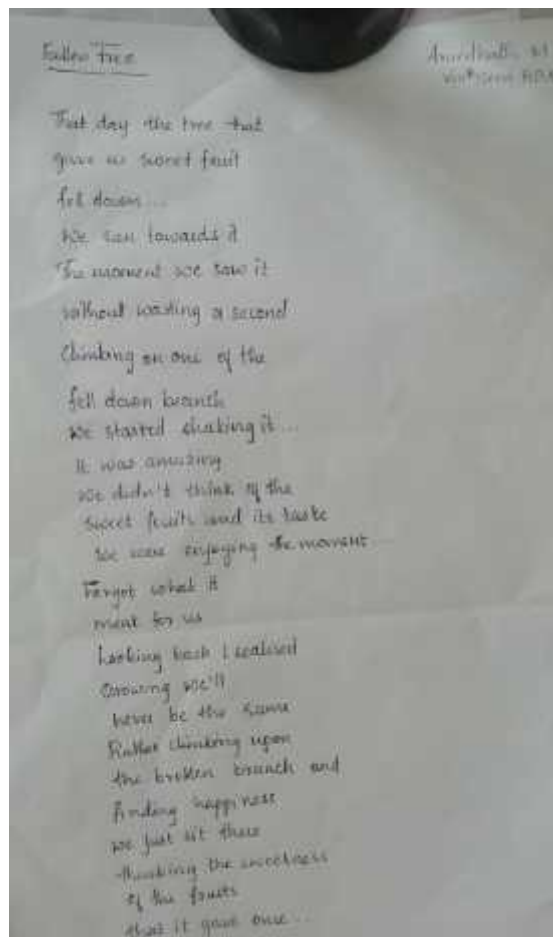 Fallen Tree
That day the tree that
gave us sweet fruit
fell down...
We ran towards it
The moment we saw it
without wasting a second
Climbing on one of the
fell down branch
We started shaking it...
It was amazing
We didn't think of the
sweet fruits and its taste
We were enjoying the moment...
Forgot what it
ment for us
Looking back I realised
Growing we'll
never be the same
Rather climbing upon
the broken branch and
finding happiness
we just sit there
thinking the sweetness
of the fruits
that it gave once...